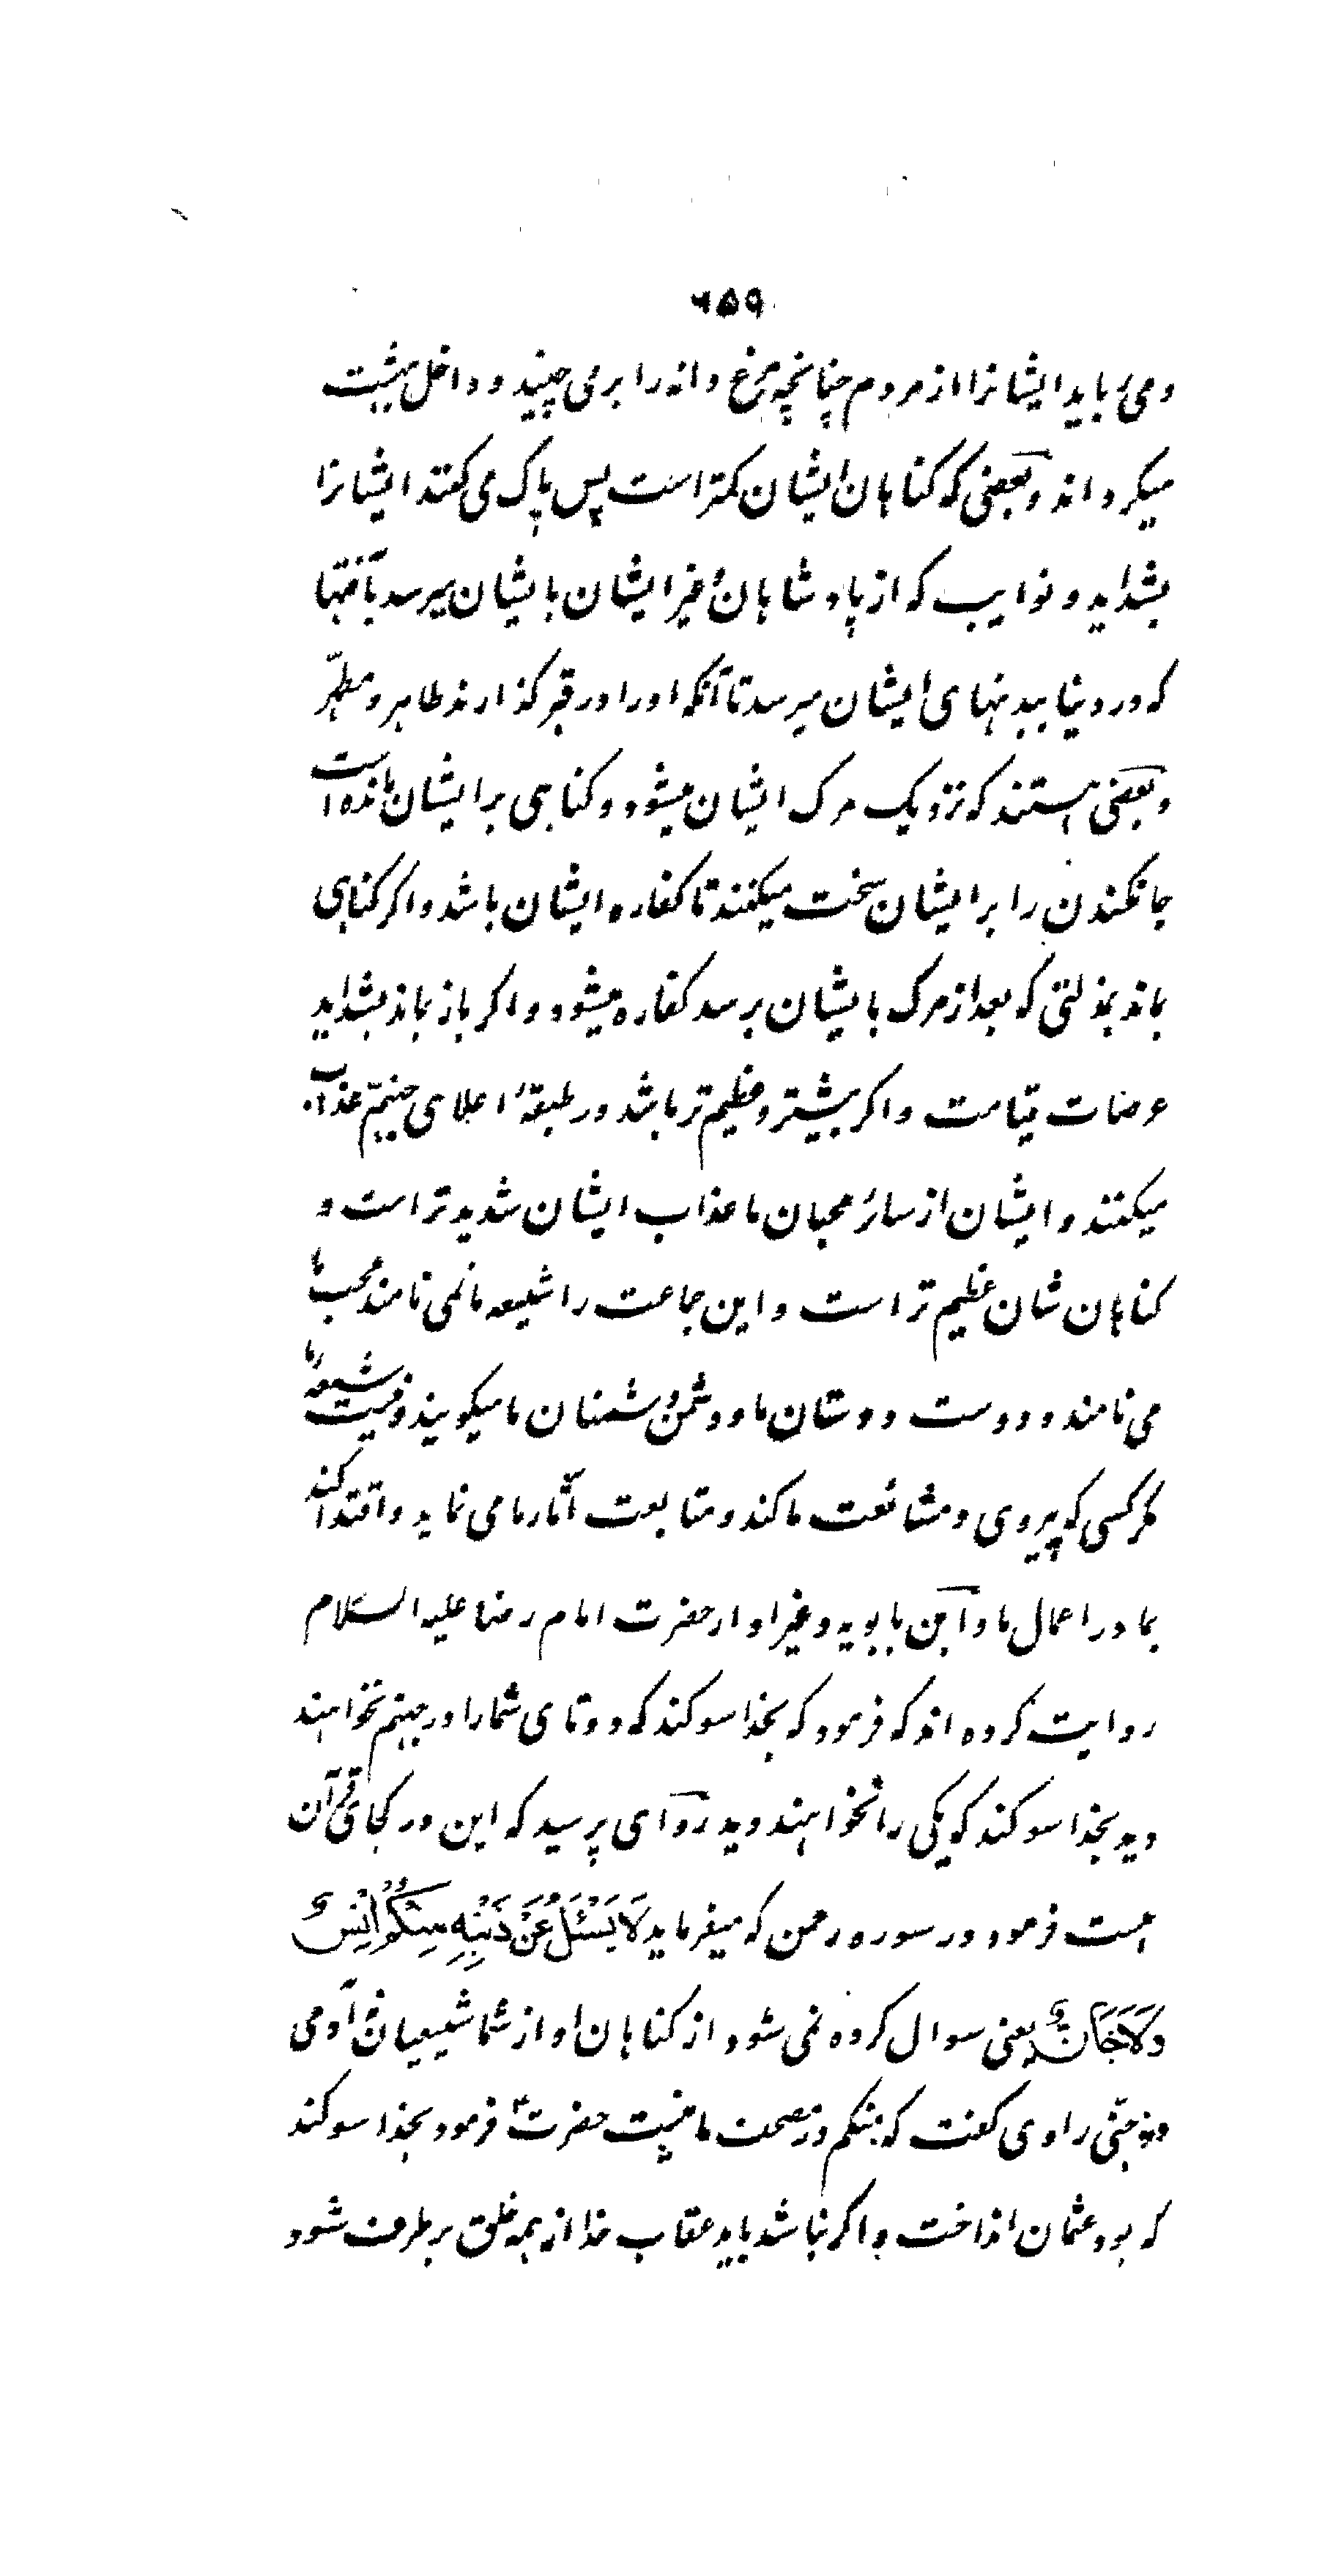 ۶۵۹
و می رباید ایشانرا از مردم چنانچه مرغ دانه را برمی چیند و داخل بهشت
میکرداند و بعضی که کناهان ایشان کمتر است پس پاک می کنند ایشانرا
بشداید و نوایب که از پادشاهان و غیر ایشان بایشان میرسد بآفتها
که در دنیا ببدنهای ایشان میرسد تا آنکه او را در قبر کذارند طاهر و مطهّر
و بعضی هستند که نزدیک مرک ایشان میشود و کناهی بر ایشان مانده است
جانکندن را بر ایشان سخت میکنند تا کفاره ایشان باشد و اکر کناهی
بماند بذلتی که بعد از مرک بایشان برسد کفاره میشود و اکر باز بماند بشداید
عرصات قیامت و اکر بیشتر و عظیم تر باشد در طبقهٔ اعلای جهنّم عذاب
میکنند و ایشان از سائر محبان ما عذاب ایشان شدیدتر است و
کناهان شان عظیم تر است و این جماعت را شیعه ما نمی نامند محب ما
می نامند و دوست دوستان ما و دشمن دشمنان ما میکویند و نیست شیعهٔ ما
مکر کسی که پیروی و مشائعت ما کند و متابعت آثار ما می نماید و اقتدا کند
بما در اعمال ما و ابن بابویه و غیر او از حضرت امام رضا علیه السّلام
روایت کرده اند که فرمود که بخدا سوکند که دو تای شما را در جهنم نخواهند
دید بخدا سوکند که یکی را نخواهند دید راوی پرسید که این در کجای قرآن
است فرمود در سوره رحمن که میفرماید لَا یُسْئَلُ عَنْ ذَنْبِهِ مِنْکُمْ اِنْسٌ
وَلَا جَانٌّ یعنی سوال کرده نمی شود از کناهان او از شما شیعیان نه آدمی
و نه جنّی راوی کفت که منکم در مصحف ما نیست حضرت فرمود بخدا سوکند
که بود عثمان انداخت و اکر نباشد باید عقاب خدا از همه خلق برطرف شود